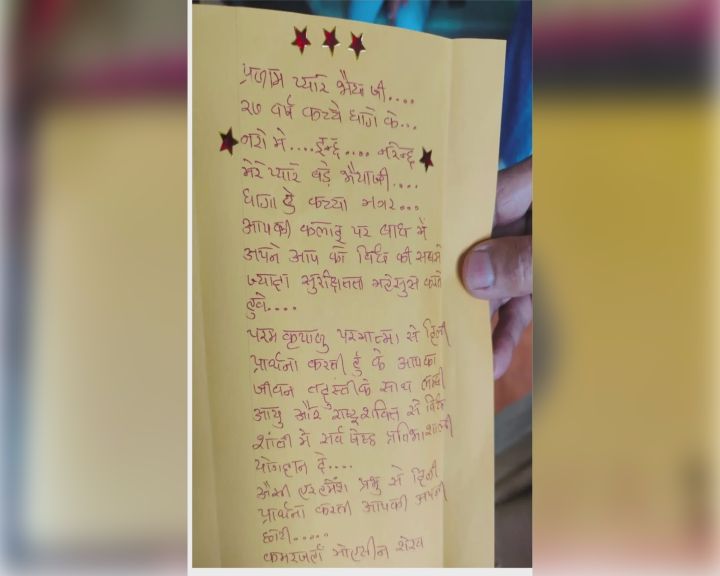 प्रणाम प्यारे भैया जी....
२७ वर्ष कच्चे धागे के...
नरो मे....इन्द्र.... नरेन्द्र
मेरे प्यारे बड़े भैयाजी....
धागा है कच्चा मगर...
आपकी कलाइ पर बांध में
अपने आप को विश्व की सबसे
ज्यादा सुरक्षितता महेसुस करते
हुवे....
परम कृपालु परमात्मा से दिली
प्रार्थना करती हुं के आपका
जीवन तंदुरस्ती के साथ लम्बी
आयु और राष्ट्रशक्ति से विश्व
शांती मे सर्व श्रेष्ठ प्रतिभाशाली
योगदान दे....
प्रभु से दिली
प्रार्थना करती आपकी अपनी
छोटी.....
कमरजहाँ मोहसीन शेख